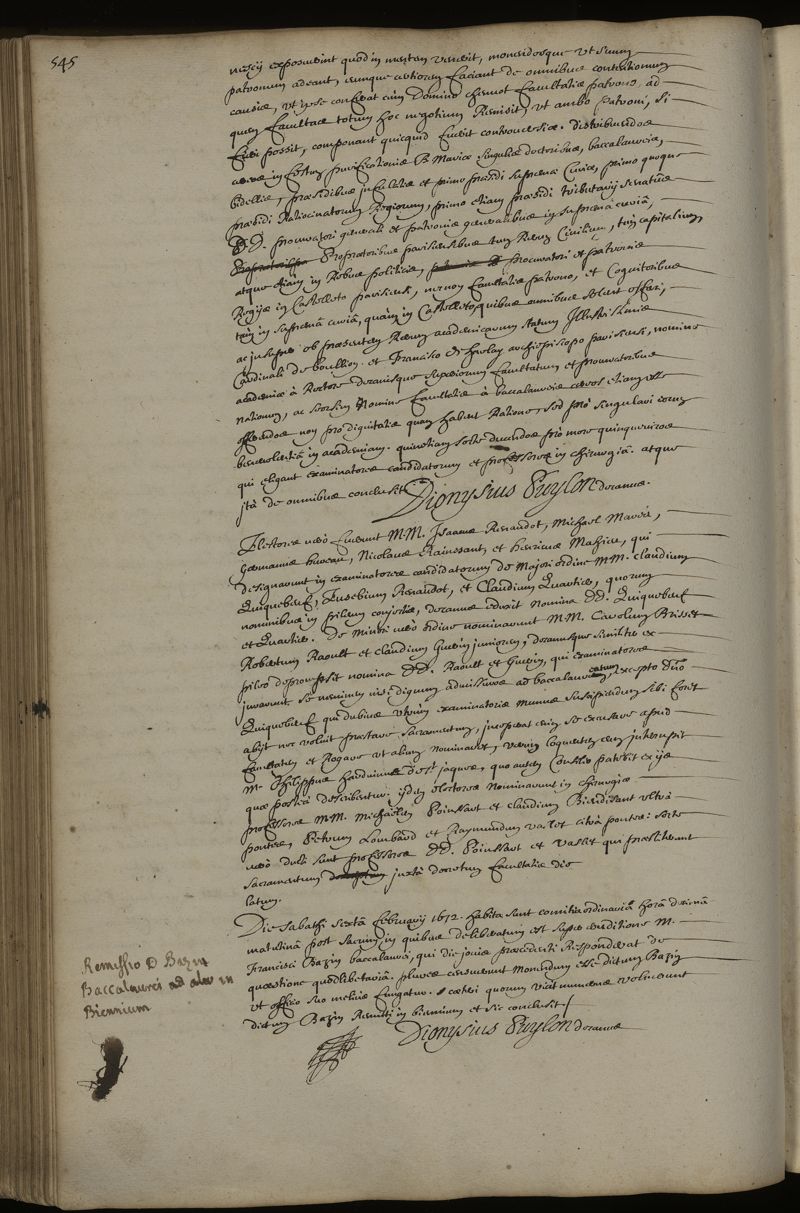 545
exposuerint quod in mentem venerit, monendosque ut suum
patronum adeant, eumque certiorem faciant de omnibus contentionum
causis, ut ipse conferat cum Domino chenot facultatis patrono, ad
quem facultas totum hoc negotium Remisit, ut ambo patroni, si
fieri possit, componant quicquid fuerit controversiae. Distribuendos
in festum purificationis B. Mariae singulis doctoribus, baccalaureis,
bidellis, praesidibus et primo praesidi supremae Curiae, primo quoque
praesidi Ratiocinatorum Regiorum, primo etiam praesidi tributarij senatus
DD. procuratori generali et patronis generalibus in suprema curia,
parisiensibus tum Rerum Civilium, tum capitalium
atque etiam in Rebus politicis, procuratori et patronis
Regijs in Castelleto parisiensi, necnon facultatis patrono, et Cognitoribus
tum in suprema curia, quam in Castelleto, quibus omnibus solent offerri,
ac insuper ob praesentem Rerum academicarum statum Illustrissimis
Cardinali de boullion et Francisco de harlay archiepiscopo parisiensi, nomine
academiae à Rectore decanisque superiorum facultatum et procuratoribus
nationum, ac seorsim Nomine facultatis à baccalaureis cereos etiam esse
offerendos non pro dignitatis quam habent Ratione, sed pro singulari eorum
benevolentia in academiam. quinetiam sorte ducendos pro more quinqueviros
qui eligant examinatores candidatorum et professores in chirurgia. atque
ita de omnibus conclusit Dionysius Puylon decanus.
Electores vero fuerunt M.M. Isaacus Renaudot, Michael Mares,
Germanus hureau, Nicolaus Rainssant, et henricus Mahieu, qui
designarunt in examinatores candidatorum de Majori ordine MM. claudium
Quiquebeuf, Eusebium Renaudot, et Claudium Quartier, quorum
nominibus in pileum conjectis, decanus eduxit nomina DD. Quiquebeuf
et Quartier. De minori vero ordine nominarunt MM. Carolum Brisset
Robertum Raoult et claudium Guerin juniorem, decanusque similiter ex
pileo deprompsit nomina DD. Raoult et Guerin, qui examinatores
jurarunt se neminem nisi dignum admissuros ad baccalaureatum, excepto duo
Quiquebeuf qui dubius utrum examinatoris munus suscipiendum sibi foret
abijt nec voluit praestare sacramentum, inceperat enim se excusare apud
facultatem et Rogare ut alium nominaret, verum loquentem eum interrupit
Mr Philippus harduinus de St jaques, quo autem consilio patebit ex ijs
quae postea describentur. ijdem electores nominarunt in chirurgiae
professores M.M. Michaelem Poinssart et claudium Berdidant ultra
pontes, Petrum Lombard et Raymundum vallet citra pontes: sorte
vero ducti sunt professores DD. Poinssart et Vallet qui praestiterunt
sacramentum juxta decretum facultatis die
latum.
Die Sabathi sexta februarij 1672. habita sunt comitia ordinaria hora decima
matutina post sacrum in quibus deliberatum est super eruditione M.
Francisci Bazin baccalaurei, qui die jovis praecedenti Responderat de
quaestione quodlibetaria. plures censuerunt monendum esse dictum Bazin
ut officio suo melius fungatur. caeteri quorum vicit numerus voluerunt
dictum Bazin Remitti in biennium et sic conclusit
Dionysius Puylon decanus
Remissio D. Bazin
Baccalaurei ad in
Biennium